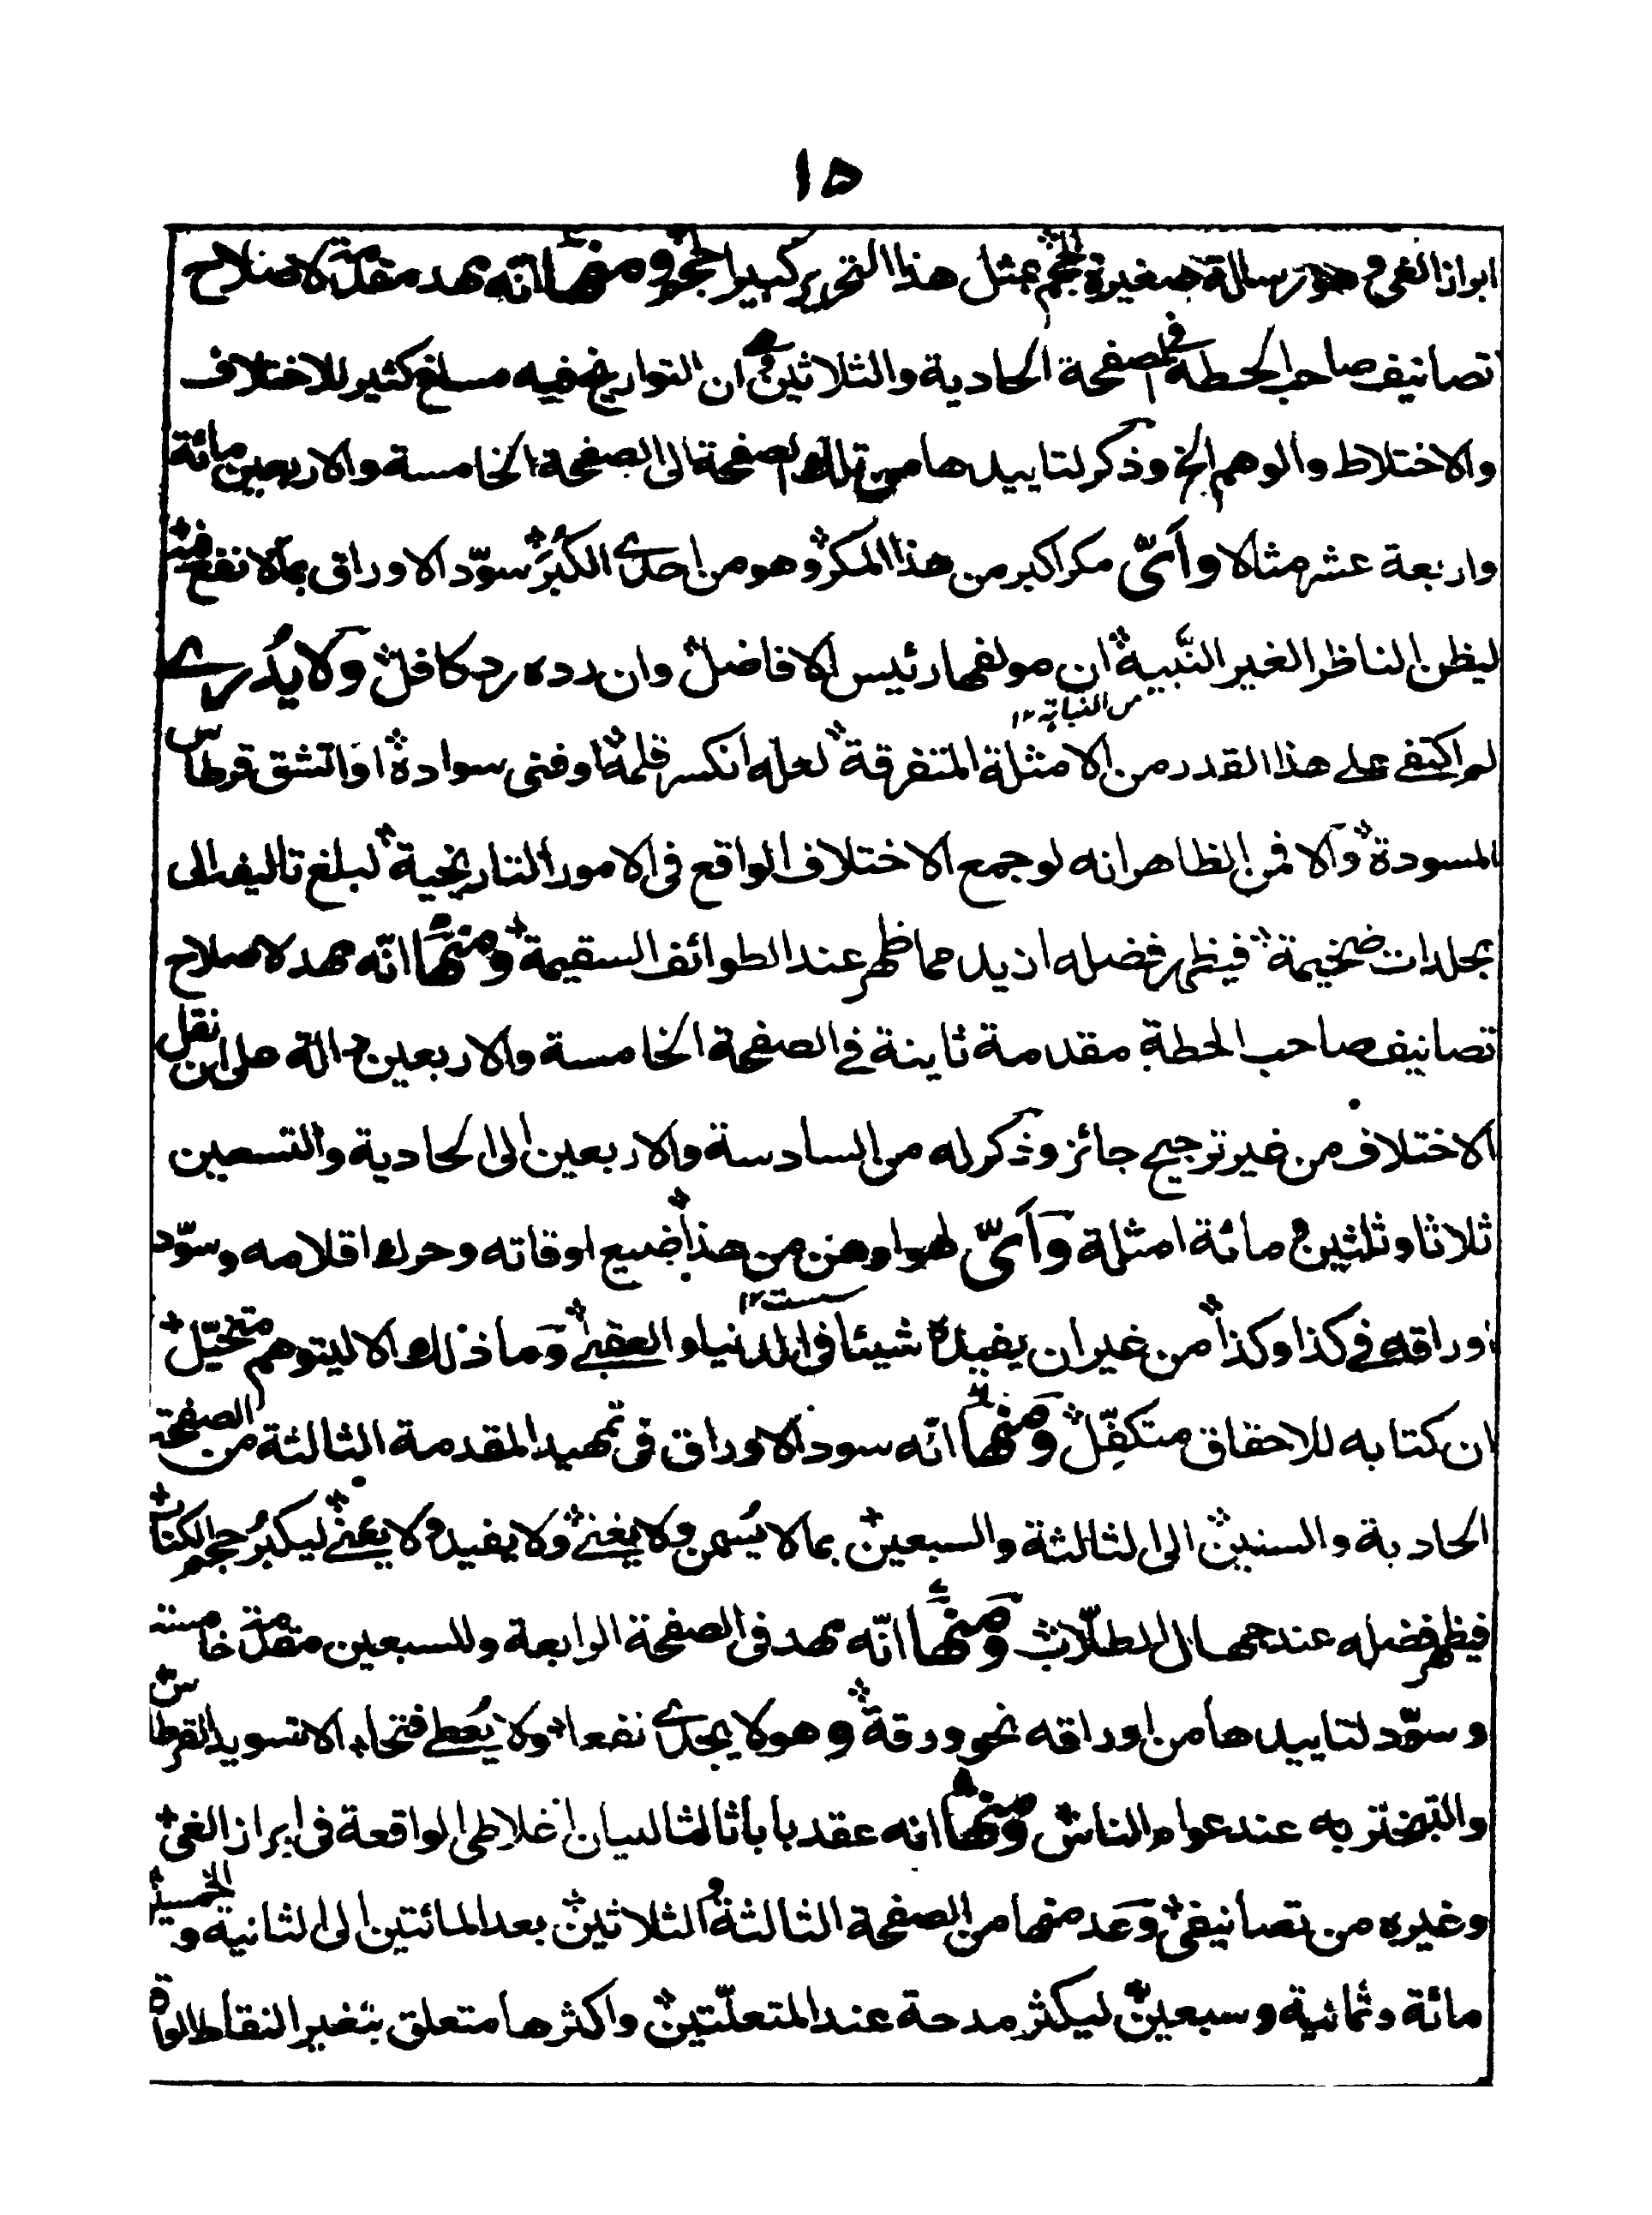 ١٥
ابراز الغي وهو رسالة صغيرة الحجم بمثل هذا التحرير كبيرا لحجم ومنها انه مهد مقدمة لاصلاح
تصانيف صاحب الحطة في الصفحة الحادية والثلاثين وهي ان التواريخ فيه مساغ كثير للاختلاف
والاختلاط والوهم الخ وذكر لتاييدها من تلك الصفحة الى الصفحة الخامسة والاربعين مائة
واربعة عشر مثالا وأىّ مكر اكبر من هذا المكر وهو من احدى الكُبَر سوّد الاوراق بما لا نفع فيه
ليظن الناظر الغير النَّبيه ان مولفها رئيس الافاضل وان رده رد كافل ولا يدُرى
من النباهة ١٢
لم اكتفى على هذا القدر من الامثلة المتفرقة لعله انكسر قلمه او فنى سواده او انشق قرطاس
المسودة والا فمن الظاهر انه لو جمع الاختلاف الواقع في الامور التاريخية لبلغ تاليفه الى
مجلدات ضخيمة فيظهر فضله ازيد مما ظهر عند الطوائف السقيمة ومنها انّه مهد لاصلاح
تصانيف صاحب الحطة مقدمة ثانية في الصفحة الخامسة والاربعين دالة على ان نقل
الاختلاف من غير ترجيح جائز وذكر له من السادسة والاربعين الى الحادية والتسعين
ثلاثا وثلثين ومائة امثلة وأىّ لهو اوهن من هذا ضيع اوقاته وحرك اقلامه وسوّد
سست ١٢
اوراقه في كذا وكذا من غير ان يفيده شيئا في الدنيا والعقبى وما ذلك الا ليتوهم متخيّل
ان كتابه للاحقاق متكفِّل ومنها انّه سود الاوراق في تمهيد المقدمة الثالثة من الصفحة
الحادية والستين الى الثالثة والسبعين بما لا يُسمن ولا يغنى ولا يفيد ولا يعنى ليكبرُ حجم الكتاب
فيظهر فضله عند جهال الطلّاب ومنها انّه مهد في الصفحة الرابعة والسبعين مقدمة خامسة
وسوّد لتاييدها من اوراقه نحو ورقة وهو لا يجدى نفعا ولا يُعطى فتحا الا تسويد القرطاس
والتبختر به عند عوام الناس ومنها انه عقد بابا ثالثا لبيان اغلاطى الواقعة في ابراز الغى
وغيره من تصانيفى وعد منها من الصفحة الثالثة والثلاثين بعد المائتين الى الثانية والخمسين
مائة وثمانية وسبعين ليكثر مدحة عند المتعلّتين واكثرها متعلق بتغير النقاط